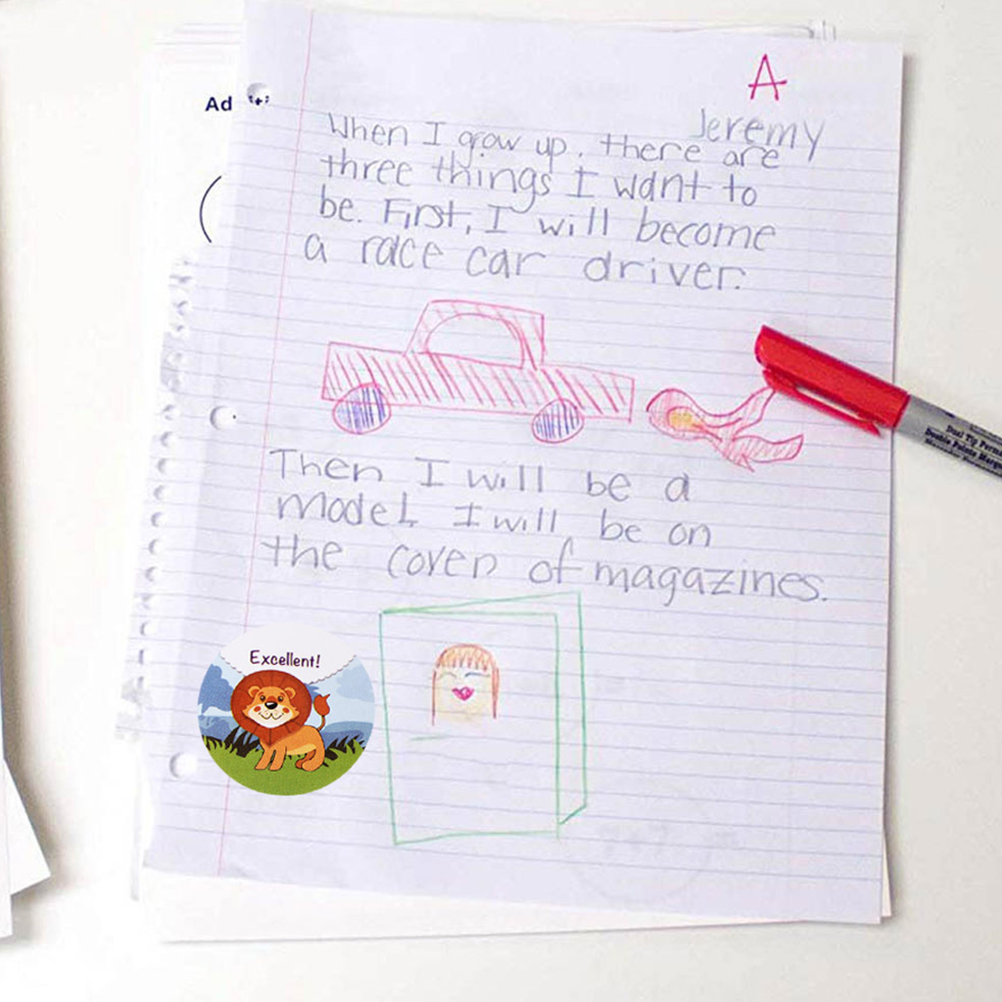 A
Jeremy
Ad
When I grow up, there are
three things I want to
be. First, I will become
a race car driver.
Then I will be a
model. I will be on
the cover of magazines.
Excellent!
Dual Tip Perma